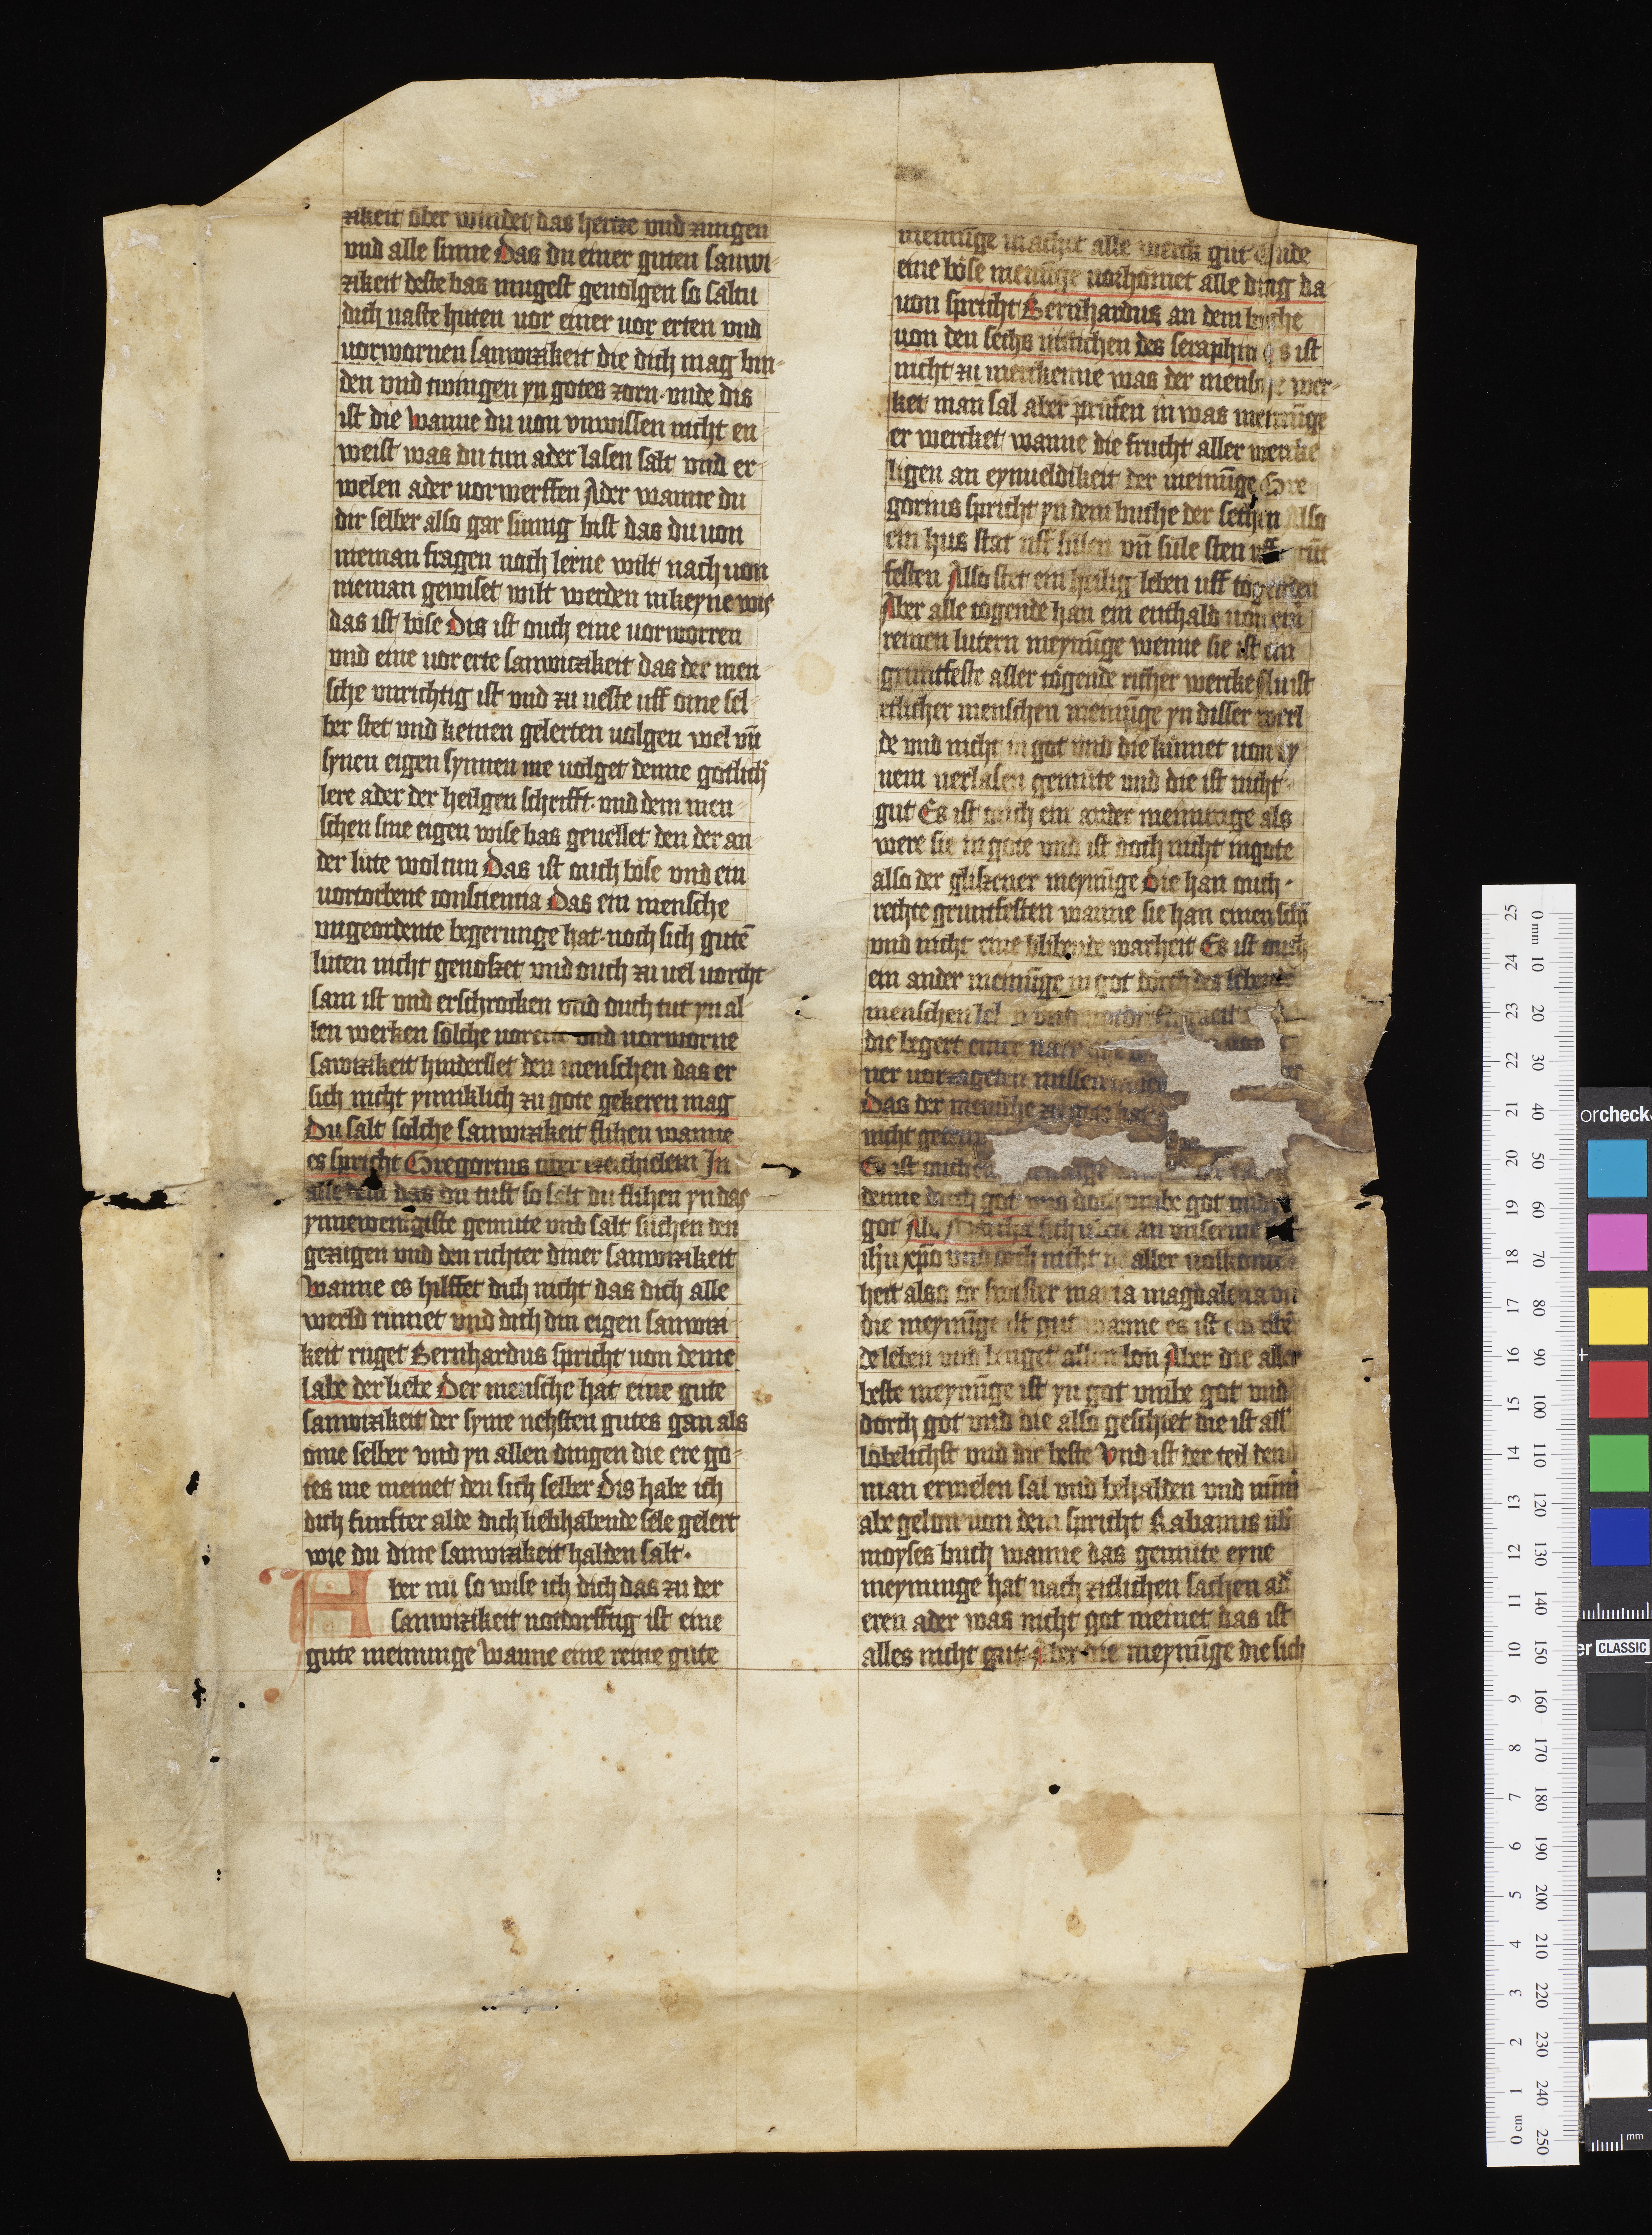 zikeit ober windet das hertze vnd zwingen
vnd alle sinne Das du einer guten sanwi-
zikeit deste bas mugest geuolgen so saltu
dich uaste huten uor einer uor erten vnd
uorwornen sanwizikeit die dich mag bin-
den vnd twingen yn gotes zorn. vnde dis
ist die Wanne du uon vnwissen nicht en-
weist was du tun ader lasen salt vnd er-
welen ader uorwerffen Ader wanne du
dir selber also gar sinnig bist das du uon
nieman fragen noch lerne wilt nach uon
nieman gewiset wilt werden inkeyne wis
das ist böse Dis ist ouch eine uorworren
vnd eine uor erte sanwizikeit das der men-
sche vnrichtig ist vnd zu ueste uff ome sel-
ber stet vnd keinen gelerten uolgen wel vn̄
synen eigen synnen me uolget denne gotlich
lere ader der heilgen schrifft. vnd dem men-
schen sine eigen wise bas geuellet den der an-
der lute wol tun Das ist ouch böse vnd ein
uortorbene consciencia Das ein mensche
vngeordente begerunge hat. noch sich gutē
luten nicht genoszet vnd ouch zu uel uorcht-
sam ist vnd erschrocken vnd ouch tut yn al
len werken sölche uorerte vnd uorworne
sawizikeit hindersset den menschen das er
sich nicht ynniklich zu gote gekeren mag
Du salt sölche sanwizikeit flihen wanne
es spricht Gregorius uber ezechielem In
alle dem das du tust so salt du flihen yn das
ynnewenigiste gemute vnd salt suchen den
gezugen vnd den richter diner sanwizikeit
Wanne es hilffet dich nicht das dich alle
werld rumet vnd dich din eigen sanwizi
keit rüget Bernhardus spricht uon deme
labe der liebe Der mensche hat eine gute
sanwizikeit der syme nehsten gutes gan als
ome selber vnd yn allen dingen die ere go-
tes me meinet den sich selber Dis habe ich
dich funfter alde dich liebhabende sele gelert
wie du dine sanwizikeit halden salt.
Aber nü so wise ich dich das zu der
sanwizikeit notdorfftig ist eine
gute meinunge Wanne eine reine gute
meinūge machit alle werck gut Unde
eine böse meinūge uorhönet alle ding da
uon spricht Bernhardus an dem buche
uon den sechs uitichen des seraphin Es ist
nicht zu merckenne was der mensche wer-
ket man sal aber prüfen in was meinūge
er wercket wanne die frucht aller wercke
ligen an eynueldikeit der meinūge Gre
gorius spricht yn dem buche der Also
ein hus stat uff sülen vn̄ süle sten uff
festen Also stet ein heilig leben uff tögenden
Aber alle tögende han ein enthald uon ein
reinen lutern meynūge wenne sie ist ein
gruntfeste aller tögende richer wercke Nu ist
etlicher menschen meinūge yn disser werl
de vnd nicht in got vnd die kümet uon ey
nem uerlasen gemüte vnd die ist nicht
gut Es ist ouch ein ander meinunge als
were sie in gote vnd ist doch nicht ingote
also der gliszener meynūge Die han ouch
rechte gruntfesten wanne sie han einen schī
vnd nicht eine blibende warheit Es ist ouch
ein ander meinūge in got dorch des lebens
menschen
die begert einer
ner uorzageten
Das der mensche zu gote hat
nicht
Es ist ouch
denne durch got vnd doch vmbe got vnd
got Als Martha sich an vnserme
ihu xpo vnd doch nicht in aller uolkomē
heit also ir swester maria magdalena vn
die meynūge ist gut wanne es ist ein
de leben vnd brenget allen lon Aber die aller
beste meynūge ist yn got vmbe got vnd
dorch got vnd die also geschiet die ist all
löbelichst vnd die beste Vnd ist der teil den
man erwelen sal vnd behalden vnd nim̄
abe gelon uon dem spricht Rabanus üb
moyses buch wanne das gemüte eyne
meynunge hat nach zitlichen sachen ad
eren ader was nicht got meinet das ist
alles nicht gut Aber die meynūge die sich